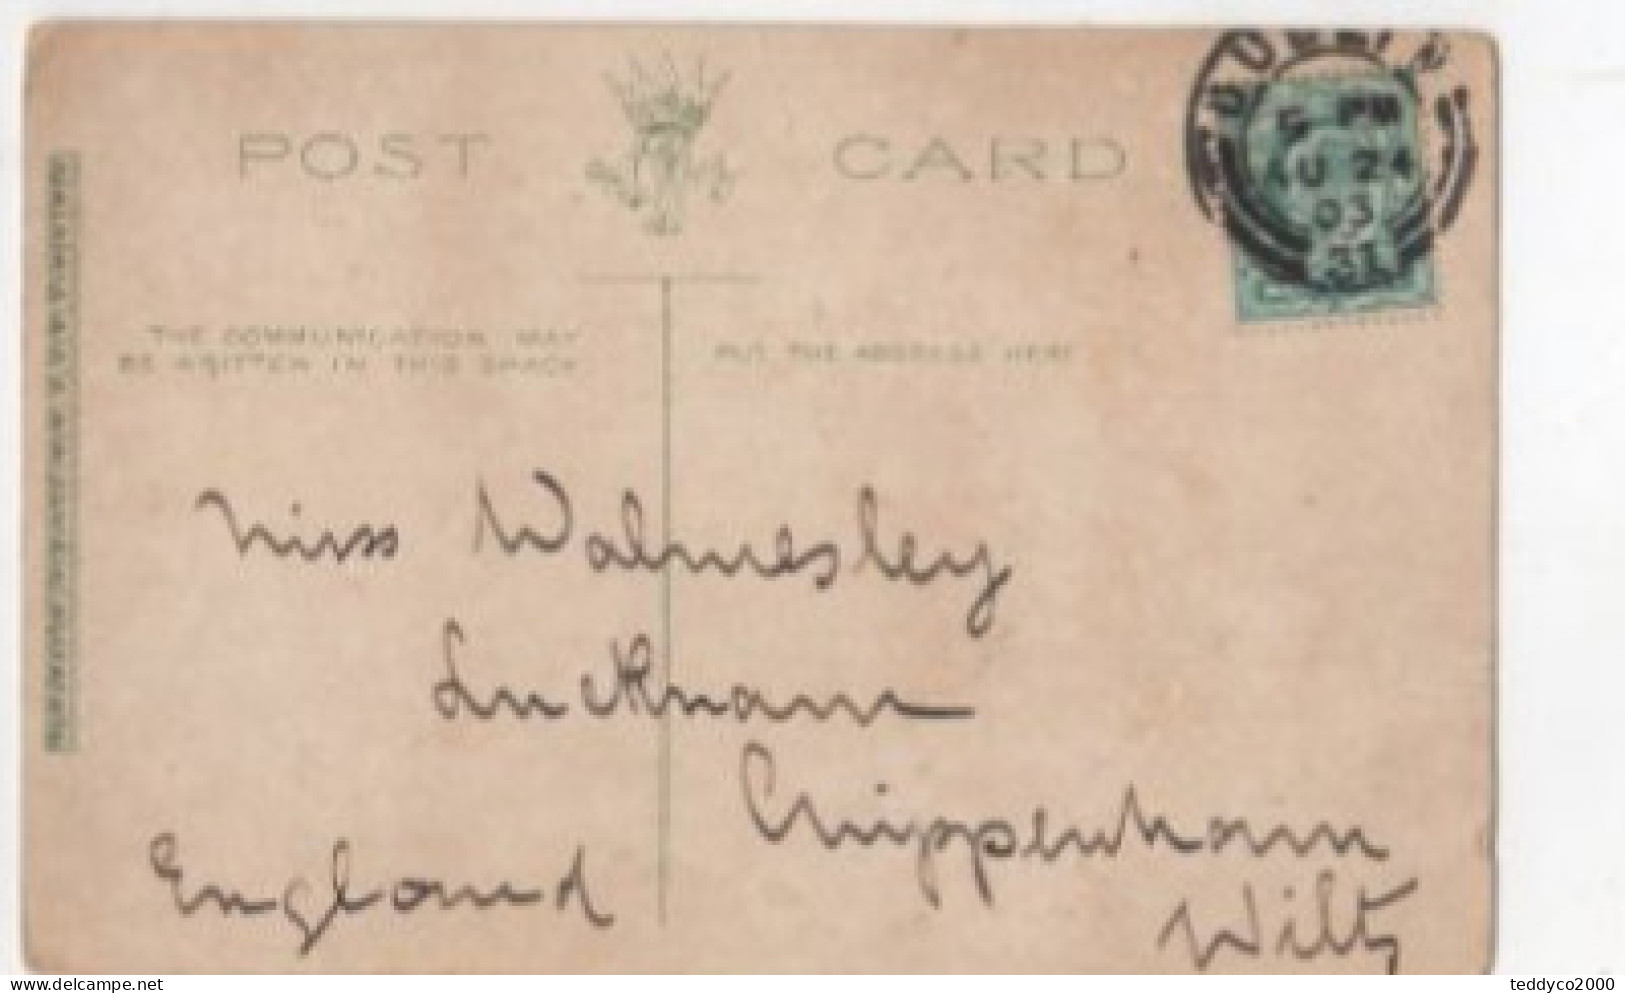 DUBLIN
5 PM
AU 24
03
31
POST CARD
THE COMMUNICATION MAY
BE WRITTEN IN THIS SPACE
PUT THE ADDRESS HERE
Miss Walmesley
Lucknam
Chippenham
Wilts
England
delcampe.net
teddyco2000